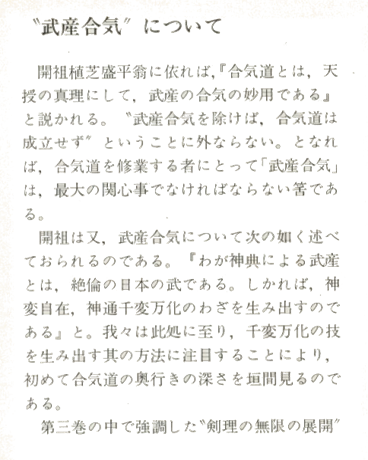 〝武産合気〟について
開祖植芝盛平翁に依れば,『合気道とは, 天
授の真理にして, 武産の合気の妙用である』
と説かれる。〝武産合気を除けば, 合気道は
成立せず〟ということに外ならない。となれ
ば, 合気道を修業する者にとって「武産合気」
は, 最大の関心事でなければならない筈であ
る。
開祖は又, 武産合気について次の如く述べ
ておられるのである。『わが神典による武産
とは, 絶倫の日本の武である。しかれば, 神
変自在, 神通千変万化のわざを生み出すので
ある』と。我々は此処に至り, 千変万化の技
を生み出す其の方法に注目することにより,
初めて合気道の奥行きの深さを垣間見るので
ある。
第三巻の中で強調した〝剣理の無限の展開〟